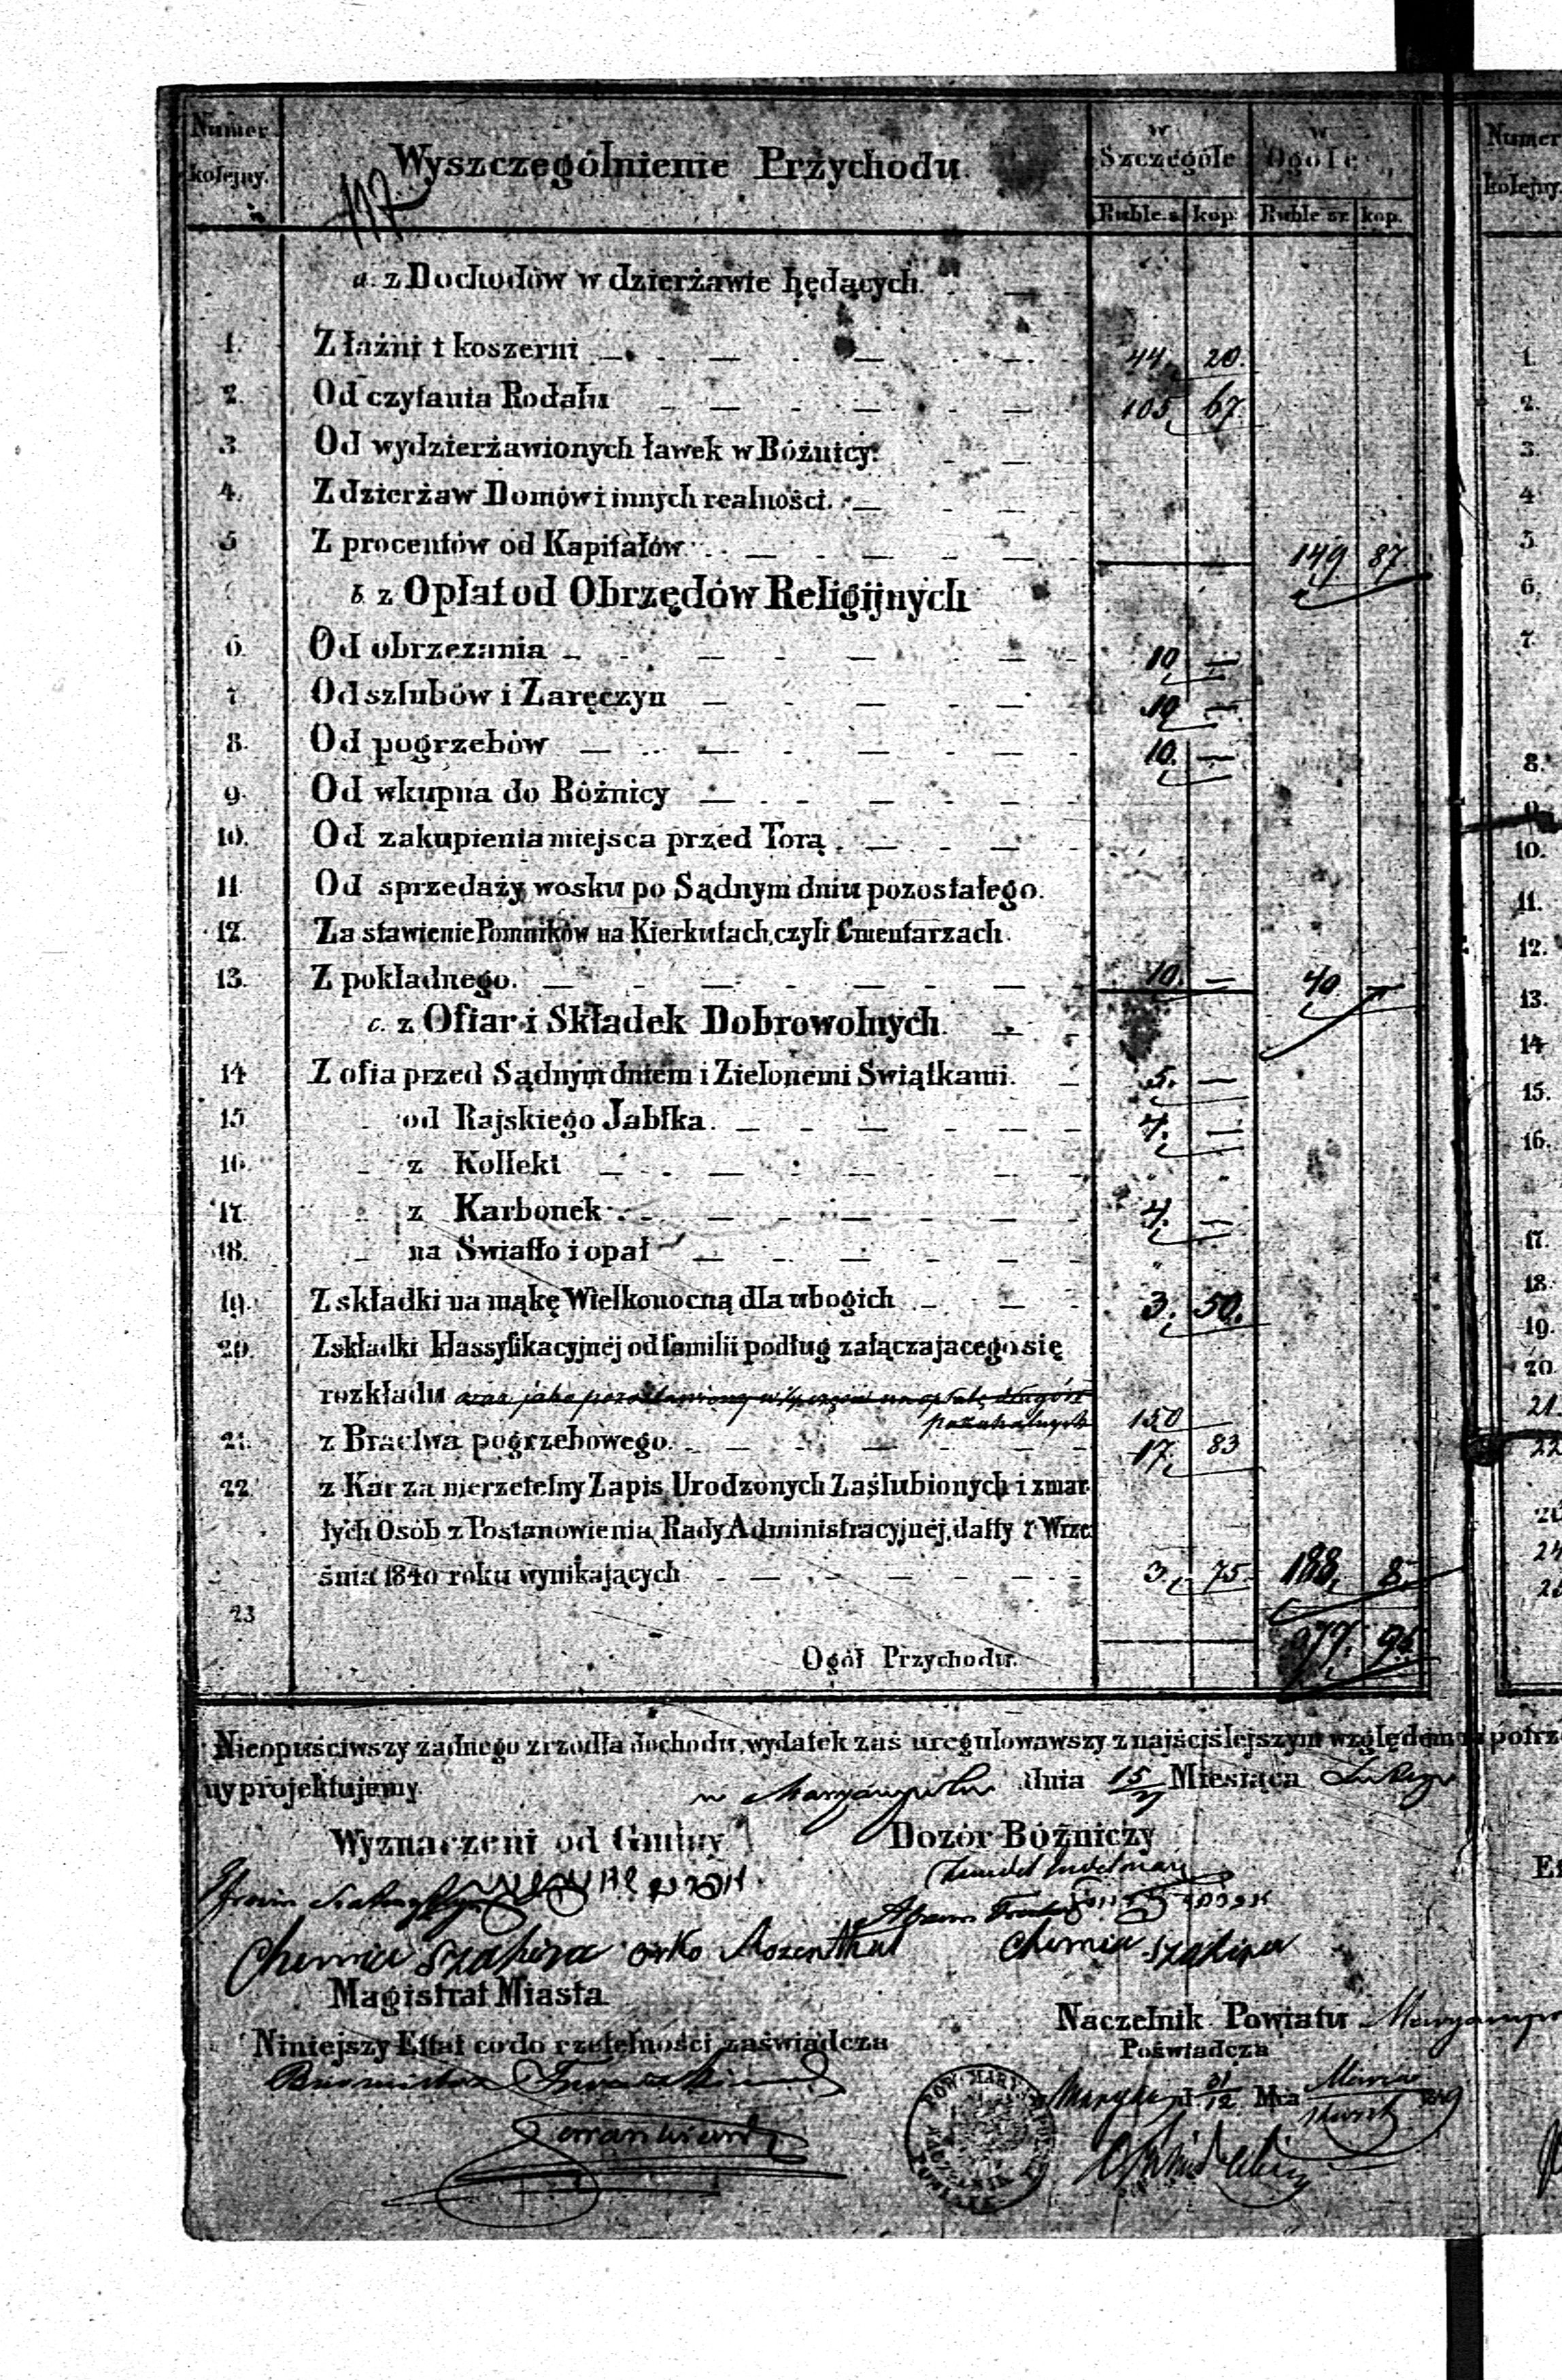 Numer kolejny.
Wyszczególnienie Przychodu.
w Szczególe
w Ogóle
Ruble s. kop: Ruble sr. kop.
117
a. z Dochodów w dzierżawie będących.
1. Z łaźni i koszerni 44. 20.
2. Od czytania Rodału 105 67
3. Od wydzierżawionych ławek w Bóżnicy.
4. Z dzierżaw Domów i innych realności.
5 Z procentów od Kapitałów 149. 87.
b. z Opłat od Obrzędów Religijnych
6. Od obrzezania 10 —
7. Od szlubów i Zaręczyn 10 —
8. Od pogrzebów 10. —
9. Od wkupna do Bóżnicy
10. Od zakupienia miejsca przed Torą.
11 Od sprzedaży wosku po Sądnym dniu pozostałego.
12. Za stawienie Pomników na Kierkutach, czyli Cmentarzach.
13. Z pokładnego. 10. — 40. —
c. z Ofiar i Składek Dobrowolnych.
14 Z ofia przed Sądnym dniem i Zielonemi Swiątkami. 5. —
15 od Rajskiego Jabłka. 4. —
16. z Kollekt
17. z Karbonek 4. —
18. na Swiatło i opał
19. Z składki na mąkę Wielkonocną dla ubogich 3. 50.
20. Z składki klassyfikacyjnéj od familii podług załączającego się
rozkładu 150 —
21. z Bractwa pogrzebowego. 17. 83
22. z Kar za nierzetelny Zapis Urodzonych Zaślubionych i zmar-
łych Osób z Postanowienia Rady Administracyjnéj, datty Wrze
śnia 1840 roku wynikających 3. 75. 188. 8.
23
Ogół Przychodu. 95.
Nieopuściwszy żadnego zrzódła dochodu, wydatek zaś uregulowawszy z najściślejszym względem
ny projektujemy.
w dnia 15 Miesiąca
Wyznaczeni od Gminy
Dozór Bóżniczy
Abram
Chemia Szapira Rozenthal Chemia Szapira
Magistrat Miasta
Naczelnik Powiatu
Niniejszy Ettat co do rzetelności zaświadcza
Poświadcza
Burmistrz
d. 31/12 Mca